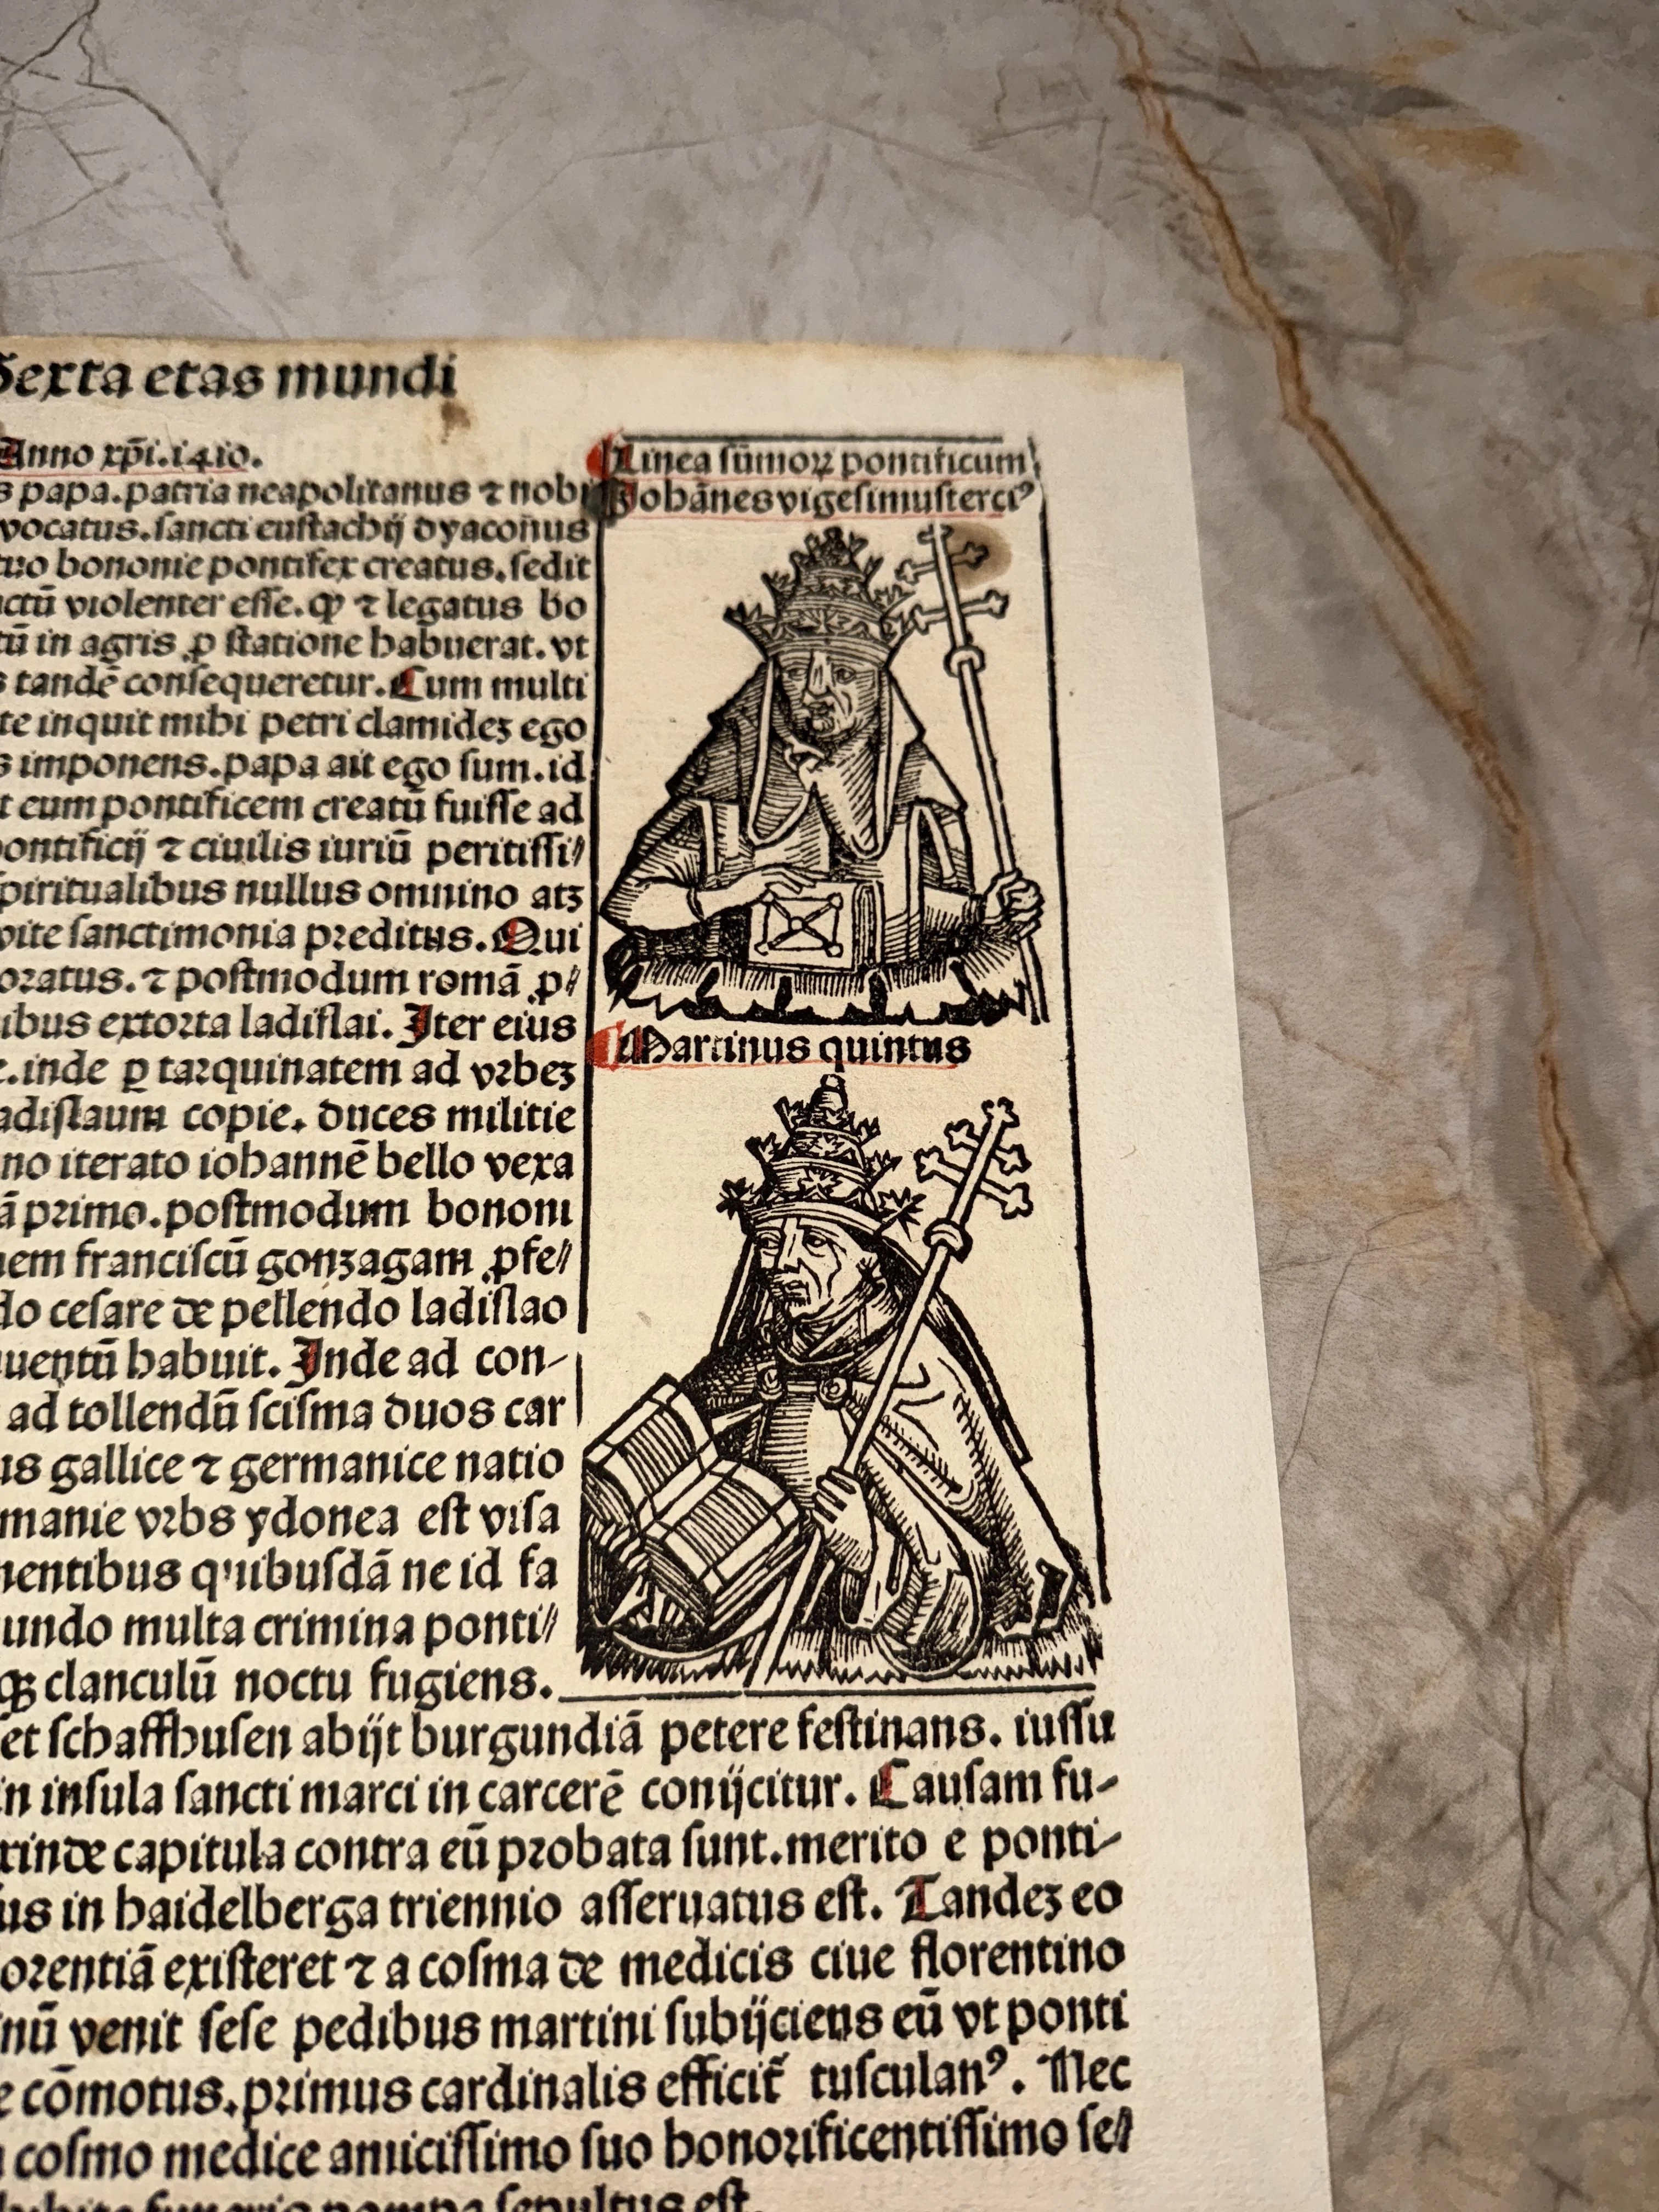 Sexta etas mundi
Anno xp̄i.1410.
Linea sūmoꝝ pontificum
Johānes vigesimusterciꝰ
s papa.patria neapolitanus ⁊ nobi
vocatus.sancti eustachij dyaconus
tuo bononie pontifex creatus.sedit
ctū violenter esse.ꝙ ⁊ legatus bo
tū in agris ꝓ statione habuerat.vt
s tandē consequeretur.Cum multi
te inquit mihi petri clamideꝫ ego
s imponens.papa ait ego sum.id
t eum pontificem creatū fuisse ad
pontificij ⁊ ciuilis iuriū peritissi⸗
spiritualibus nullus omnino atꝫ
vite sanctimonia preditus.Qui
oratus.⁊ postmodum romā ꝓ⸗
ibus extorta ladislai.Iter eius
.inde ꝑ tarquinatem ad vrbeꝫ
adislaum copie.duces militie
no iterato iohannē bello vexa
ā primo.postmodum bononi
nem franciscū gonzagam ꝓfe⸗
do cesare de pellendo ladislao
uentū habuit.Inde ad con⸗
ad tollendū scisma duos car
us gallice ⁊ germanice natio
manie vrbs ydonea est visa
nentibus quibusdā ne id fa
undo multa crimina ponti⸗
qꝫ clanculū noctu fugiens.
Martinus quintus
et schaffhusen abijt burgundiā petere festinans.iussu
in insula sancti marci in carcerē conijcitur.Causam fu⸗
rinde capitula contra eū probata sunt.merito e ponti⸗
us in haidelberga triennio asseruatus est.Tandeꝫ eo
lorentiā existeret ⁊ a cosma de medicis ciue florentino
nū venit sese pedibus martini subijciens eū vt ponti
e cōmotus.primus cardinalis efficit̄ tusculanꝰ.Nec
cosmo medice amicissimo suo honorificentissimo se⸗
pompa sepultus est.